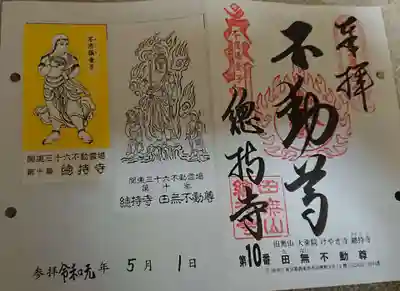 奉拝
不動尊
總持寺
田無山
總持寺
田無山 大楽院 けやき寺 總持寺
第10番 田無不動尊
不思議童子
関東三十六不動霊場
第十番 總持寺
関東三十六不動霊場
第十番
總持寺 田無不動尊
参拝 令和元年 5月 1日